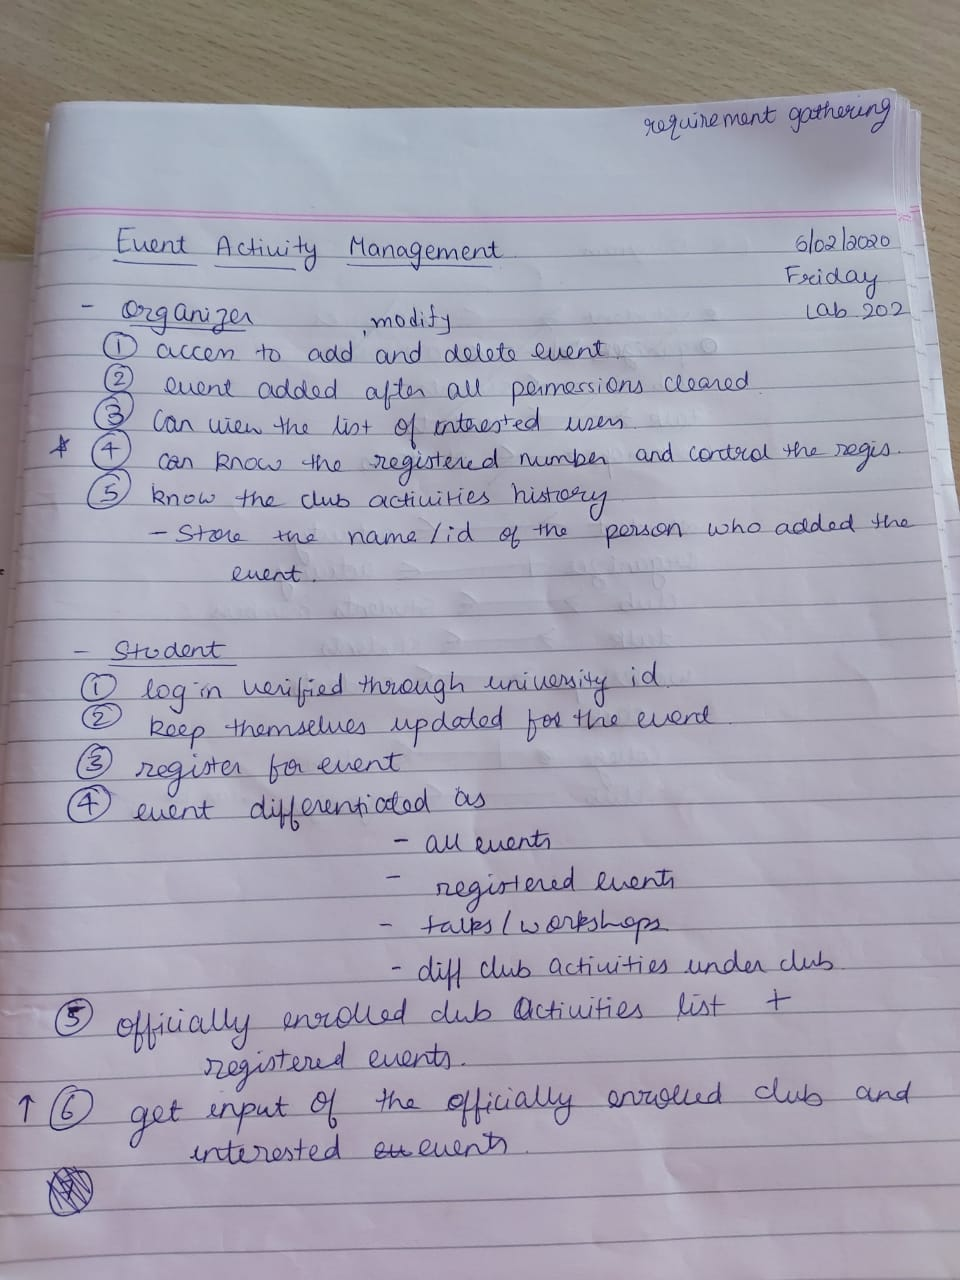 requirement gathering
Event Activity Management
6/02/2020
Friday
Lab 202
- Organizer
, modify
① access to add and delete event
② event added after all permessions cleared
③ Can view the list of interested users
* ④ can know the registered number and control the regis.
⑤ know the club activities history
- Store the name/id of the person who added the
event.
- Student
① log in verified through university id
② keep themselves updated for the event.
③ register for event
④ event differentiated as
- all events
- registered events
- talks/workshops
- diff club activities under club
⑤ officially enrolled club activities list +
registered events.
↑ ⑥ get input of the officially enrolled club and
interested events.